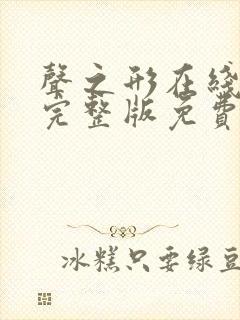 聲之形在綫
完整版免費
冰糕只要绿豆